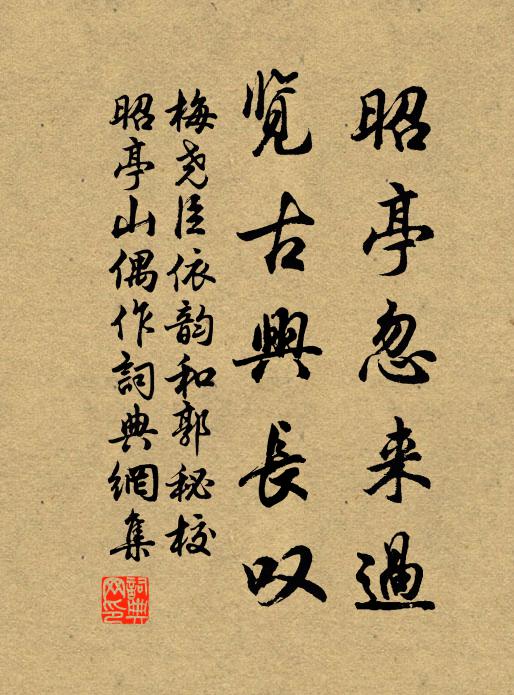 昭亭忽来過
覽古興長叹
梅尧臣依韵和郭秘校
昭亭山偶作詞典網集
詞典网印